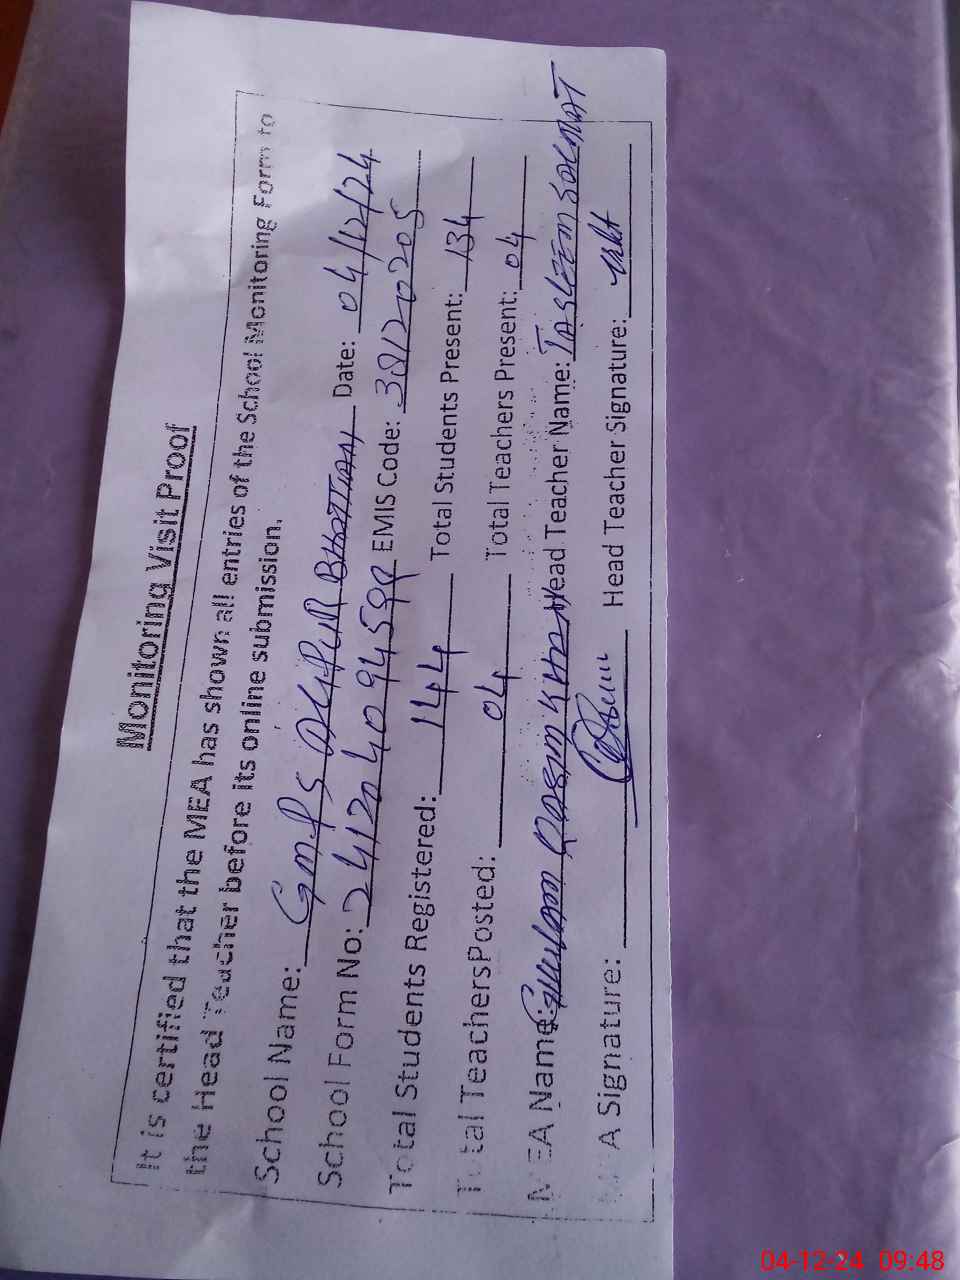 Monitoring Visit Proof
It is certified that the MEA has shown all entries of the School Monitoring Form to
the Head Teacher before its online submission.
School Name: GMPS BHATTIAN Date: 04/12/24
School Form No: 24120409459 EMIS Code: 38120205
Total Students Registered: 144 Total Students Present: 134
Total Teachers Posted: 04 Total Teachers Present: 04
MEA Name: Ghulam Qasim Khan Head Teacher Name: TASLEEM
MEA Signature: Head Teacher Signature:
04-12-24 09:48